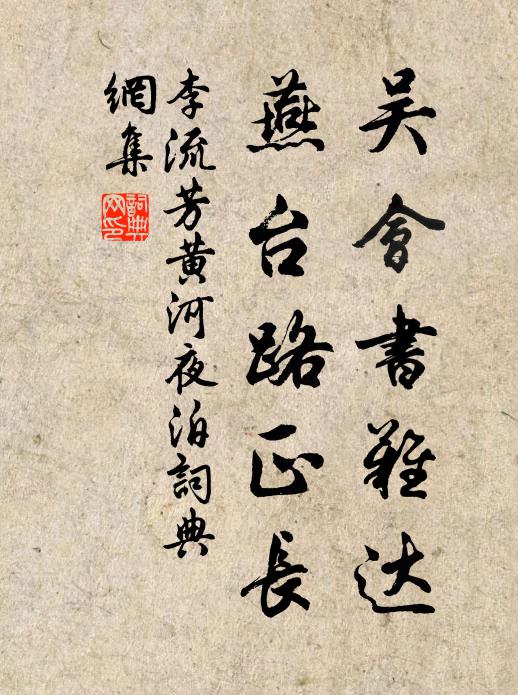 吴會書難达
燕台路正長
李流芳黄河夜泊詞典
網集
詞典网印